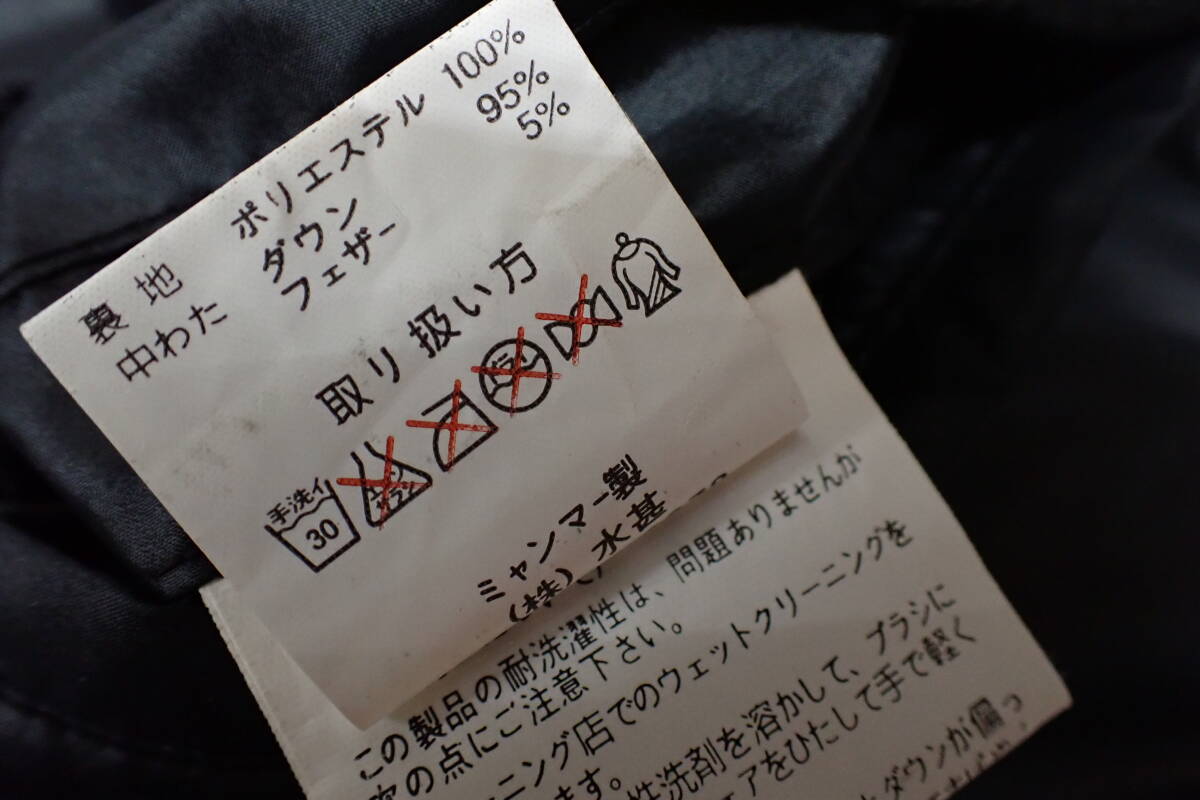 裏地 ポリエステル 100%
中わた ダウン 95%
フェザー 5%
取り扱い方
手洗イ
30
エンソ
サラシ
ミャンマー製
(株)水甚
この製品の耐洗濯性は、問題ありませんが
次の点にご注意下さい。
ニング店でのウェットクリーニングを
ます。
性洗剤を溶かして、ブラシに
アをひたして手で軽く
ダウンが偏っ